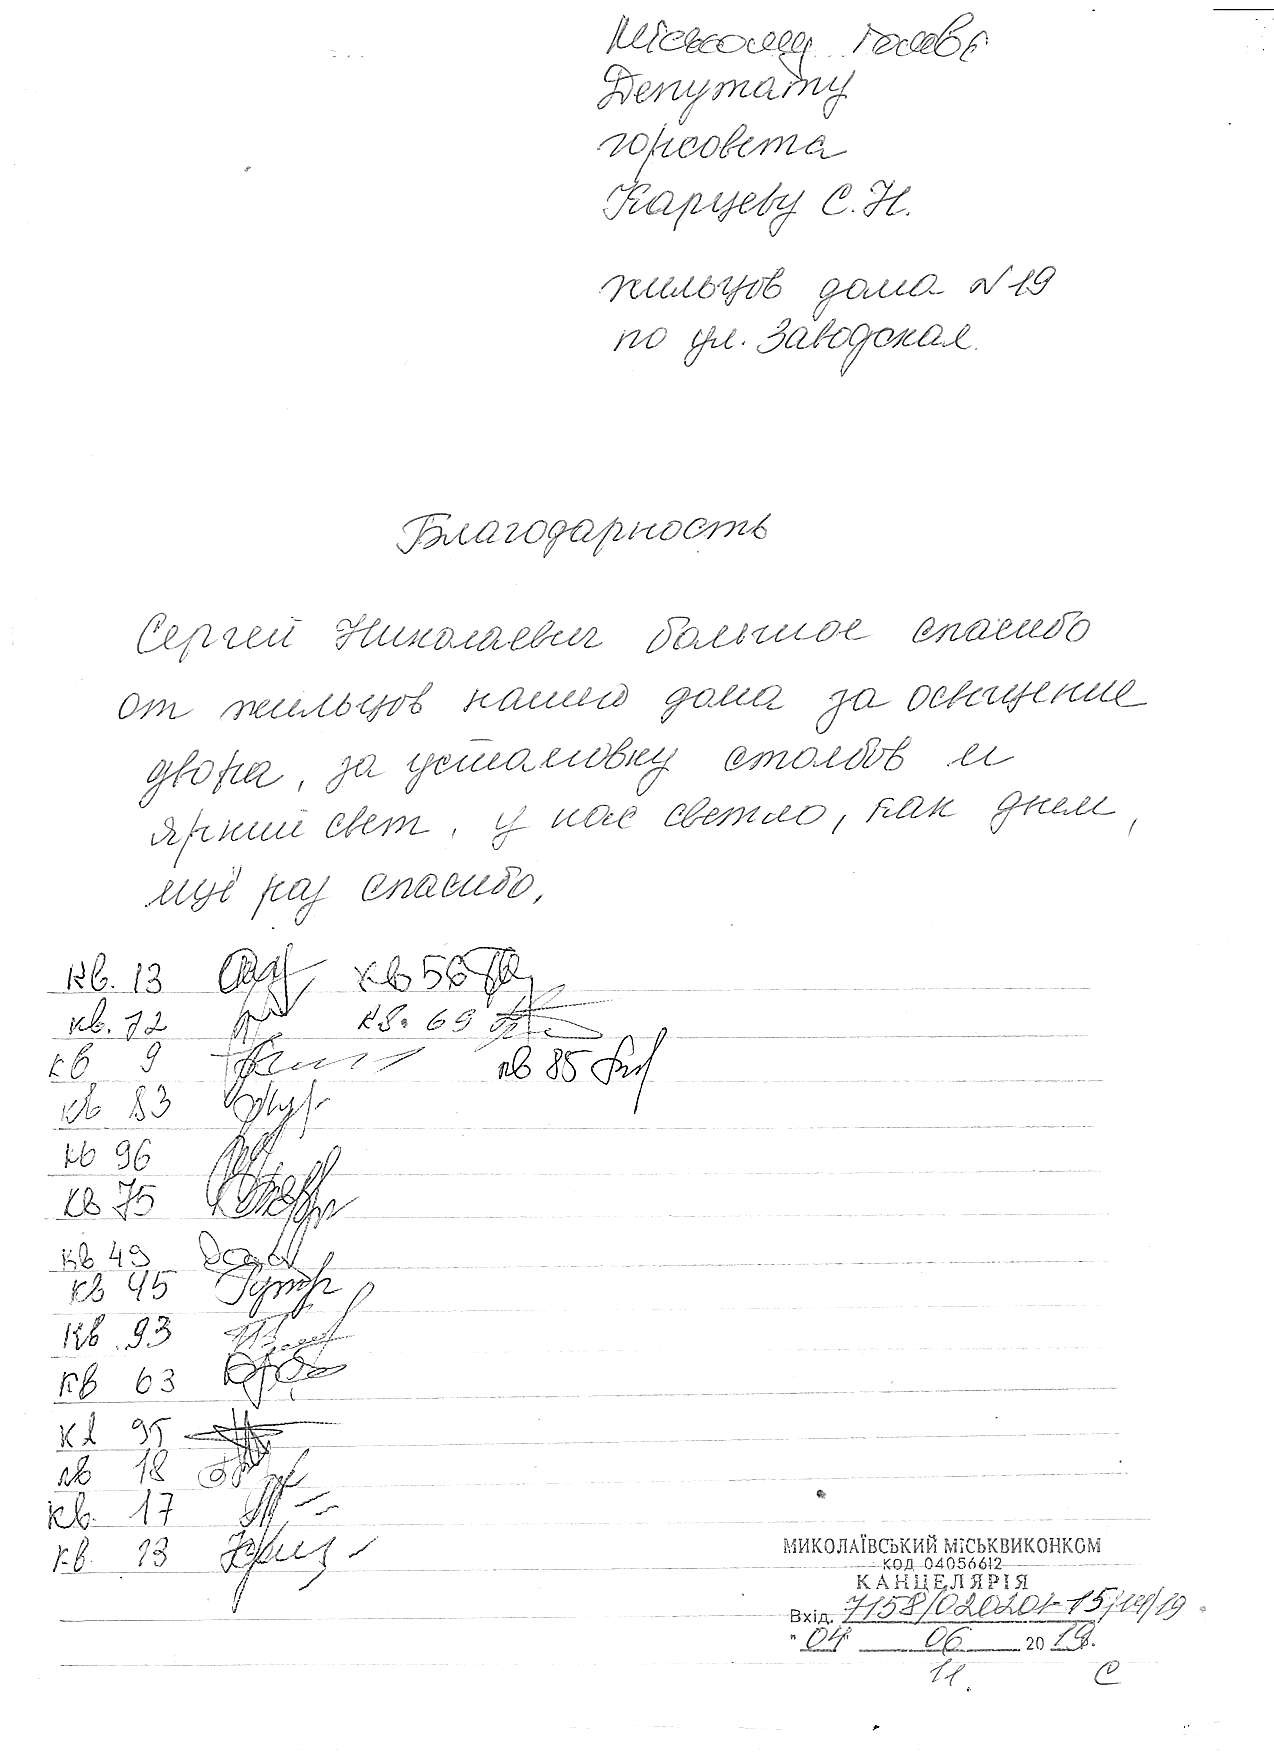 Міському голові
Депутату
горсовета
Карцеву С.Н.
жильцов дома №19
по ул. Заводская.
Благодарность
Сергей Николаевич большое спасибо
от жильцов нашего дома за освещение
двора, за установку столбов и
яркий свет, у нас светло, как днем,
ещё раз спасибо.
кв. 13 кв 56
кв. 72 кв. 69
кв 9 кв 85
кв 83
кв 96
кв 75
кв 49
кв 45
кв 93
кв 63
кв 95
кв 18
кв. 17
кв. 13
МИКОЛАЇВСЬКИЙ МІСЬКВИКОНКОМ
КОД 04056612
КАНЦЕЛЯРІЯ
Вхід. 7158/020201-15/14/19
" 04 06 2019.
11.